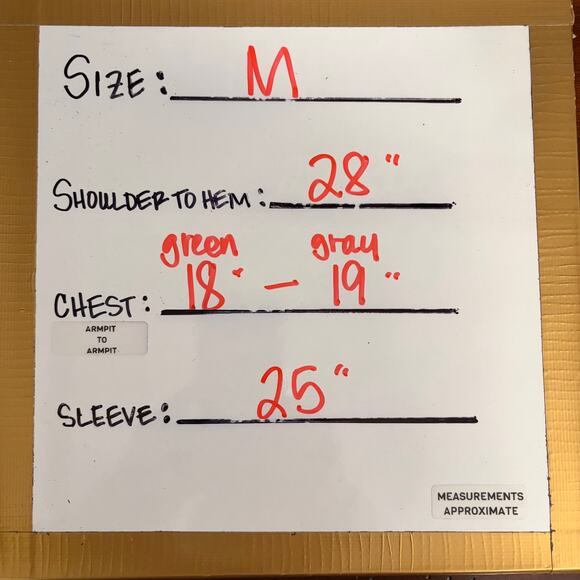 SIZE: M
SHOULDER TO HEM: 28"
green gray
CHEST: 18" - 19"
ARMPIT
TO
ARMPIT
SLEEVE: 25"
MEASUREMENTS
APPROXIMATE